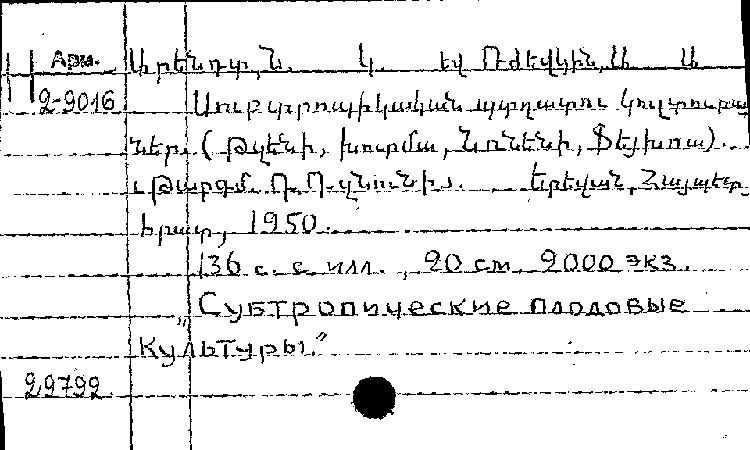 Арм. Արենդտ, Ն. Կ. եվ Ռժեվկին, Ա. Ա.
2-9016 Սուբտրոպիկական պտղատու կուլտուրա
ներ. (Թզենի, խուրմա, Նռնենի, Ֆեյխոա).
Թարգմ. Պ. Երեվան, Հայպետ
հրատ, 1950.
136 с. с илл., 20 см 2000 экз.
„Субтропические плодовые
культуры.”
29792